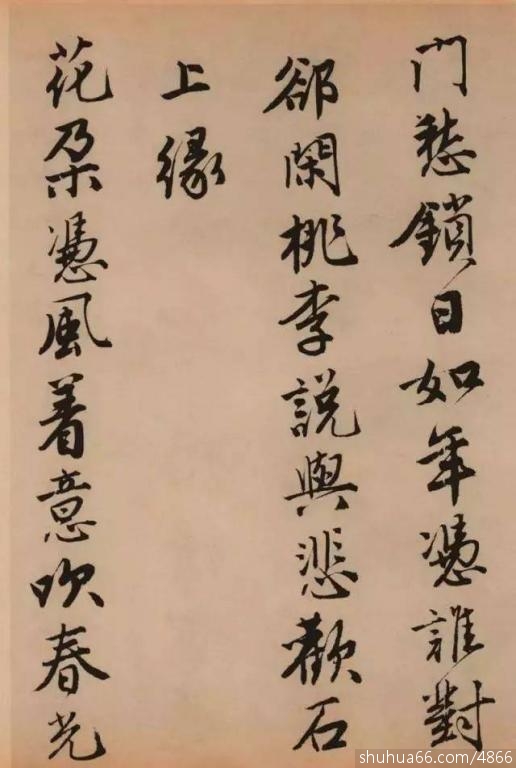 門愁鎖日如年憑誰對
郤閑桃李說與悲歡石
上緣
花朵憑風着意吹春光
shuhua66.com/4866